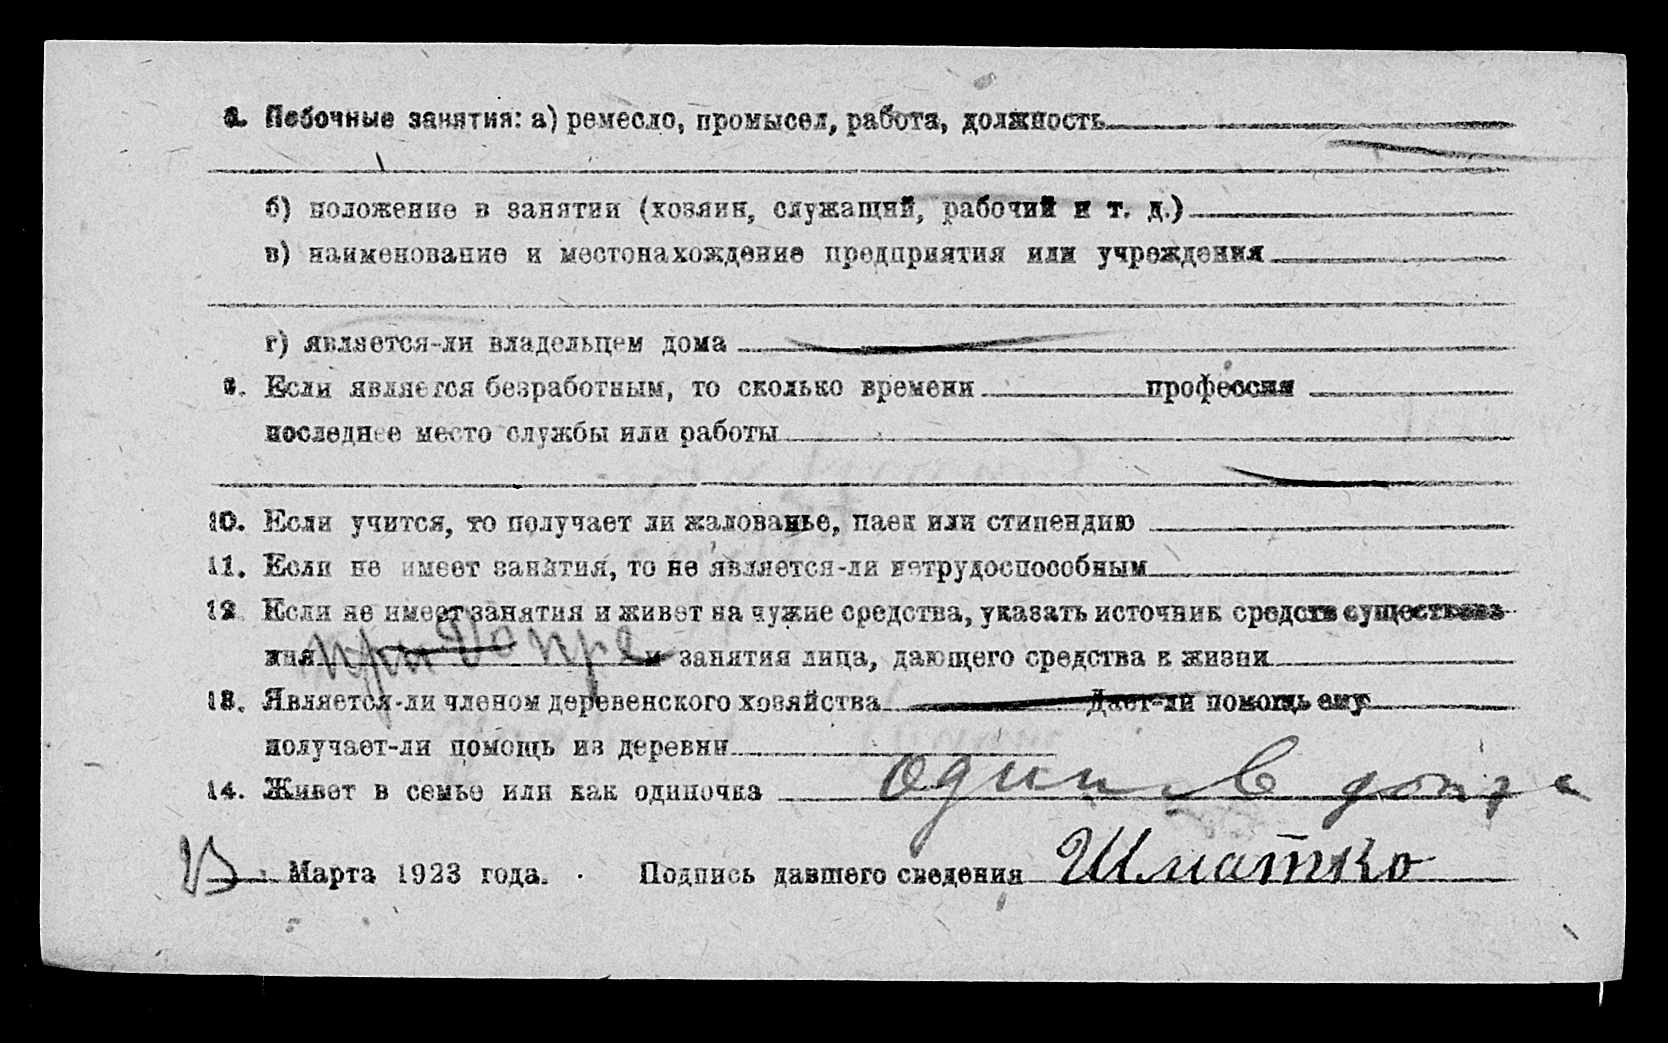 8. Побочные занятия: а) ремесло, промысел, работа, должность
б) положение в занятии (хозяин, служащий, рабочий и т. д.)
в) наименование и местонахождение предприятия или учреждения
г) является-ли владельцем дома
9. Если является безработным, то сколько времени профессия
последнее место службы или работы
10. Если учится, то получает ли жалованье, паек или стипендию
11. Если не имеет занятия, то не является-ли нетрудоспособным
12. Если не имеет занятия и живет на чужие средства, указать источник средств существова-
ния при Допре и занятия лица, дающего средства к жизни
13. Является-ли членом деревенского хозяйства Дает-ли помощь ему
получает-ли помощь из деревни
14. Живет в семье или как одиночка один в допре
Марта 1923 года. Подпись давшего сведения Шматко